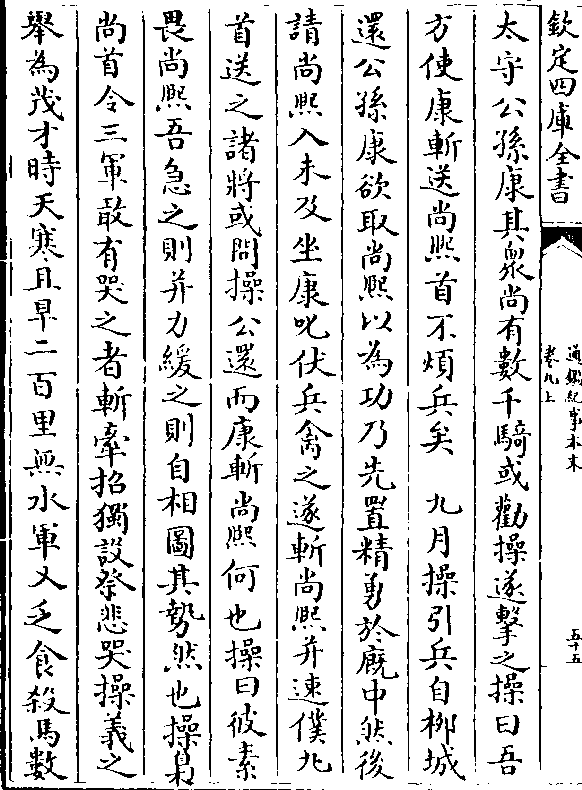 欽定四庫全書
通鑑紀事本末
卷九上
五十五
太守公孫康其衆尚有數千騎或勸操遂擊之操曰吾
方使康斬送尚熙首不煩兵矣　九月操引兵自柳城
還公孫康欲取尚熙以為功乃先置精勇於廐中然後
請尚熙入未及坐康叱伏兵禽之遂斬尚熙并速僕丸
首送之諸將或問操公還而康斬尚熙何也操曰彼素
畏尚熙吾急之則并力緩之則自相圖其勢然也操梟
尚首令三軍敢有哭之者斬牽招獨設祭悲哭操義之
舉為茂才時天寒且旱二百里無水軍又乏食殺馬數